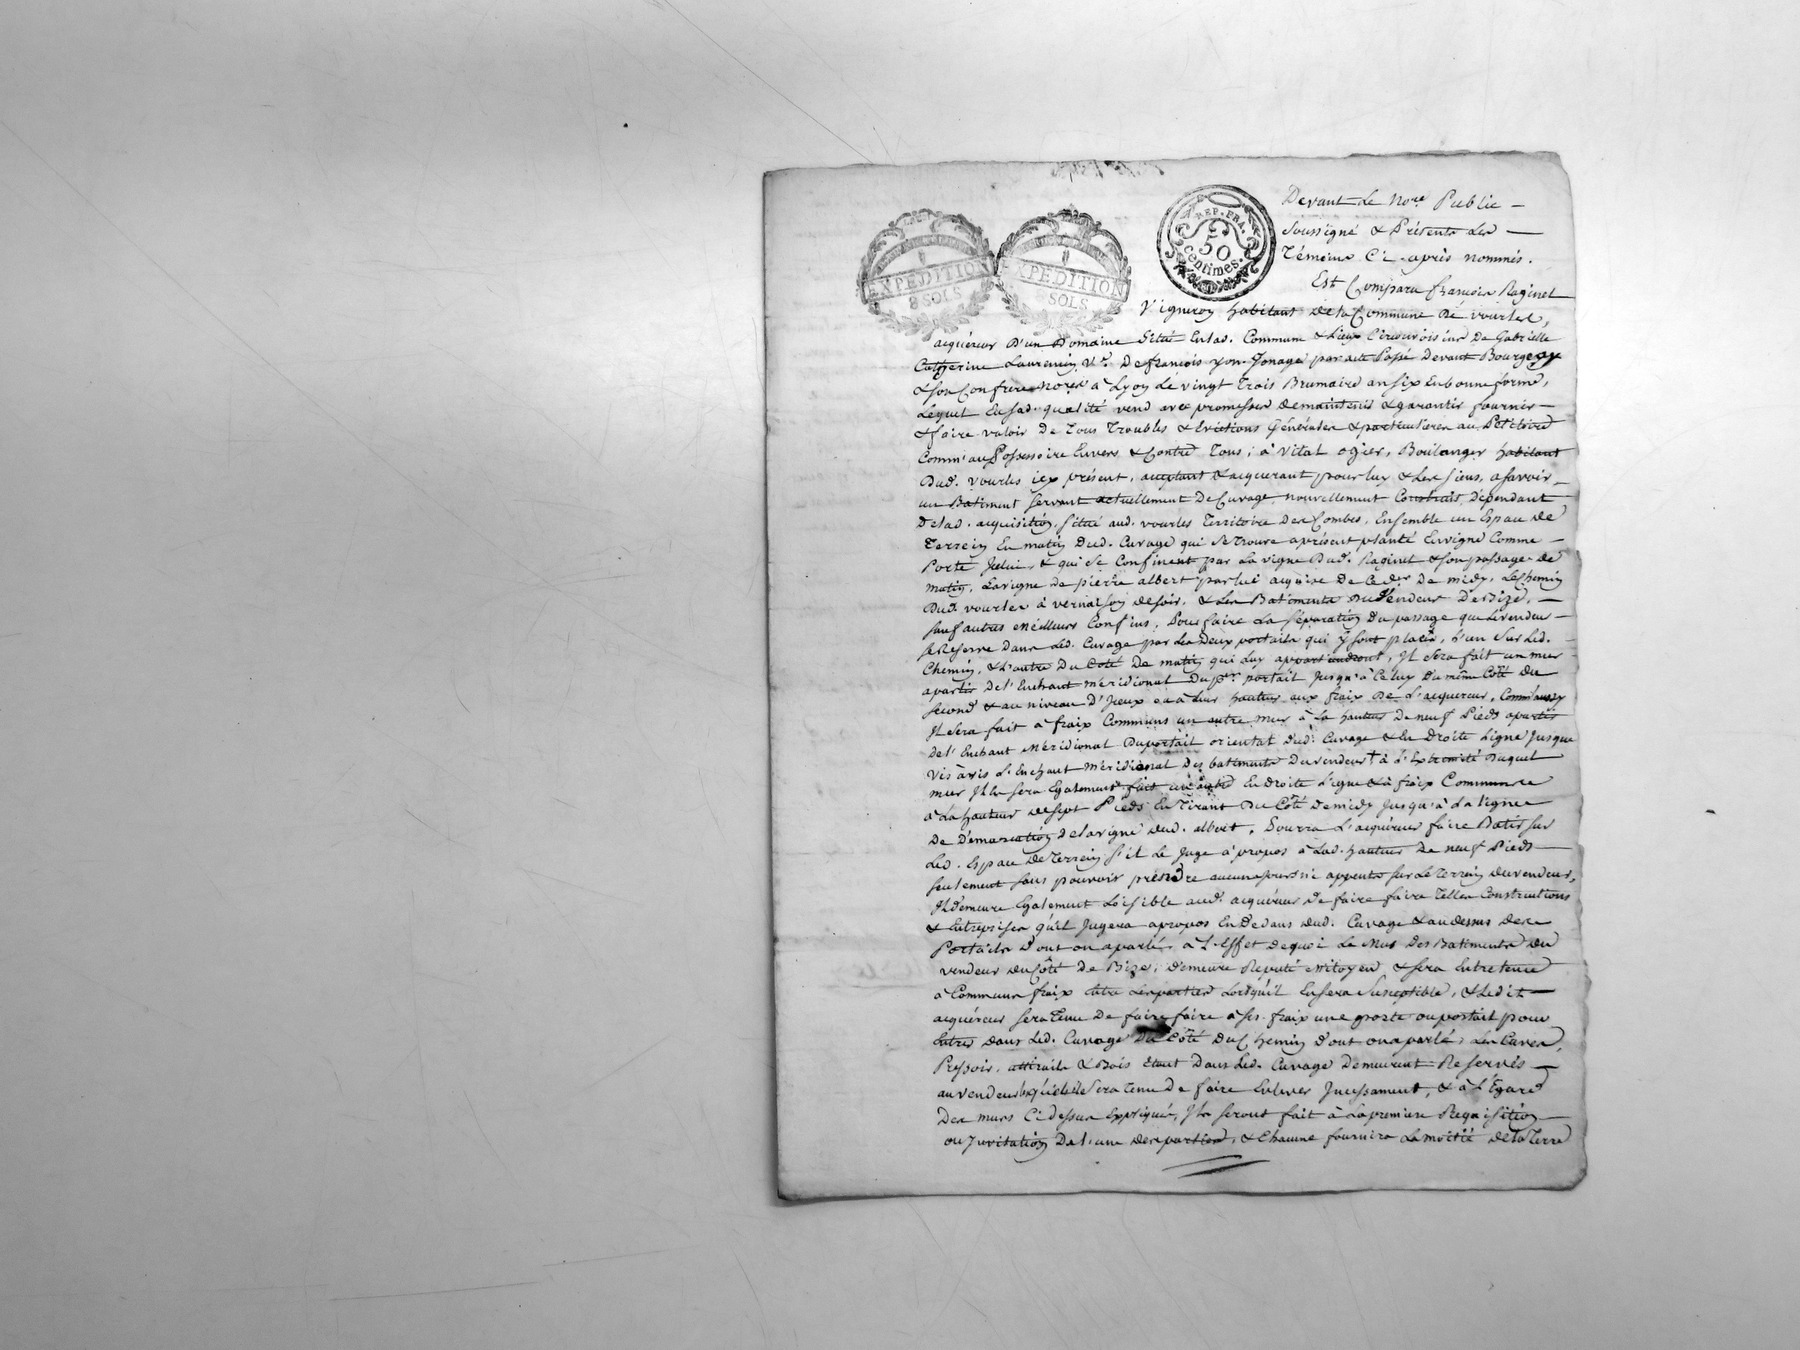 EXPEDITION
8 SOLS
EXPEDITION
SOLS
REP. FRA.
50
Centimes.
Devant Le No.re Public
Soussigné & Présents Les
Témoins Ci-après nommés.
Est Comparu françois Raginel
Vigneron habitant dela Commune de vourles,
acquéreur D'un Domaine Situé Enlad. Commune & Lieux Circonvoisins De Gabrielle
Catherine Laurencin V.e De françois yon-Jonage par acte Passé Devant Bourgeay
& Son Confrere no.res à Lyon Le vingt Trois Brumaire an Six En bonne forme,
Lequel Ensad. qualité vend avec promesses de maintenir & garantir fournir
& faire valoir De Tous Troubles & Evictions Générales & particulieres au Petitoire
Comm'au Possessoire Envers & Contre Tous, à Vital ogier, Boulanger habitant
Dud. vourles icy présent, acceptant & acquerant pour luy & Les Siens, a Savoir
un Batiment Servant actuellement De Cuvage nouvellement Construit Dépendant
Delad. acquisition, Situé aud. vourles Territoire Des Combes, Ensemble un Espace De
Terrein En matin Dud. Cuvage qui Se Trouve aprésent planté En vigne Comme
Porte Jcelui, & qui Se Confinent par La vigne Dud. Raginel & Son passage De
matin, La vigne de pierre albert par lui acquise De Ced.er De midy, Le Chemin
Dud. vourles à vernaison De Soir, & Les Batiments Du Vendeur De Bize,
Sauf autres Meilleurs Confins, Pour faire La Séparation Du passage que Le vendeur
Se Reserve Dans Led. Cuvage par Les Deux portails qui y Sont placés, L'un Sur Led.
Chemin, & L'autre Du Coté De matin qui Luy appartiendront, Jl Sera fait un mur
apartir De l'Enchant méridional Du p.er portail Jusqu'à Celuy Du même Côté Du
Second & au niveau D'Jceux ou à Leur hauteur aux fraix De L'acquereur, Comm'aussy
Jl Sera fait à fraix Communs un autre mur à La hauteur De neuf Pieds apartir
de l'Enchant Méridional Du portail oriental Dud. Cuvage & En Droite Ligne Jusque
vis àvis L'Enchant Méridional Des batiments Du vendeur † à L'Extremité Duquel
mur Jl En Sera Egalement fait un autre En Droite Ligne & à fraix Communs
à La hauteur De Sept Pieds En Tirant Du Côté De midy Jusqu'à La Ligne
De Démarcation De la vigne Dud. albert, Pourra L'acquéreur faire Batir Sur
Led. Espace De Terrein S'il Le Juge à propos à Lad. hauteur De neuf Pieds
Seulement Sans pouvoir prendre aucuns Jours ni appents Sur Le Terrein Du vendeur,
Jl Demeure Egalement Loisible aud. acquéreur De faire faire Telles Constructions
& Entreprises qu'il Jugera apropos En Dedans Dud. Cuvage & au dessus Des
Portails D'ont on a parlé, à L'Effet De quoi Le Mur Des Batiments Du
vendeur Du Côté De Bize, Demeure Réputé Mitoyen, & Sera Entretenu
à Communs fraix Entre Les parties Lorsqu'il En Sera Susceptible, & Ledit
acquéreur Sera Tenu De faire faire à Ses fraix une porte ou portail pour
Entrer Dans Led. Cuvage Du Côté Du Chemin D'ont on a parlé, Les Cuves,
Pressoir, attirails & Bois Etant Dans Led. Cuvage Demeurent Reservés
au vendeur Sera Tenu De faire Enlever Jncessament, & à L'Egard
Des murs Ci Dessus Expliqués, Jls Seront fait à La premiere Requisition
ou Jnvitation De L'une Des parties, & Chacune fournira La moitié De la Terre